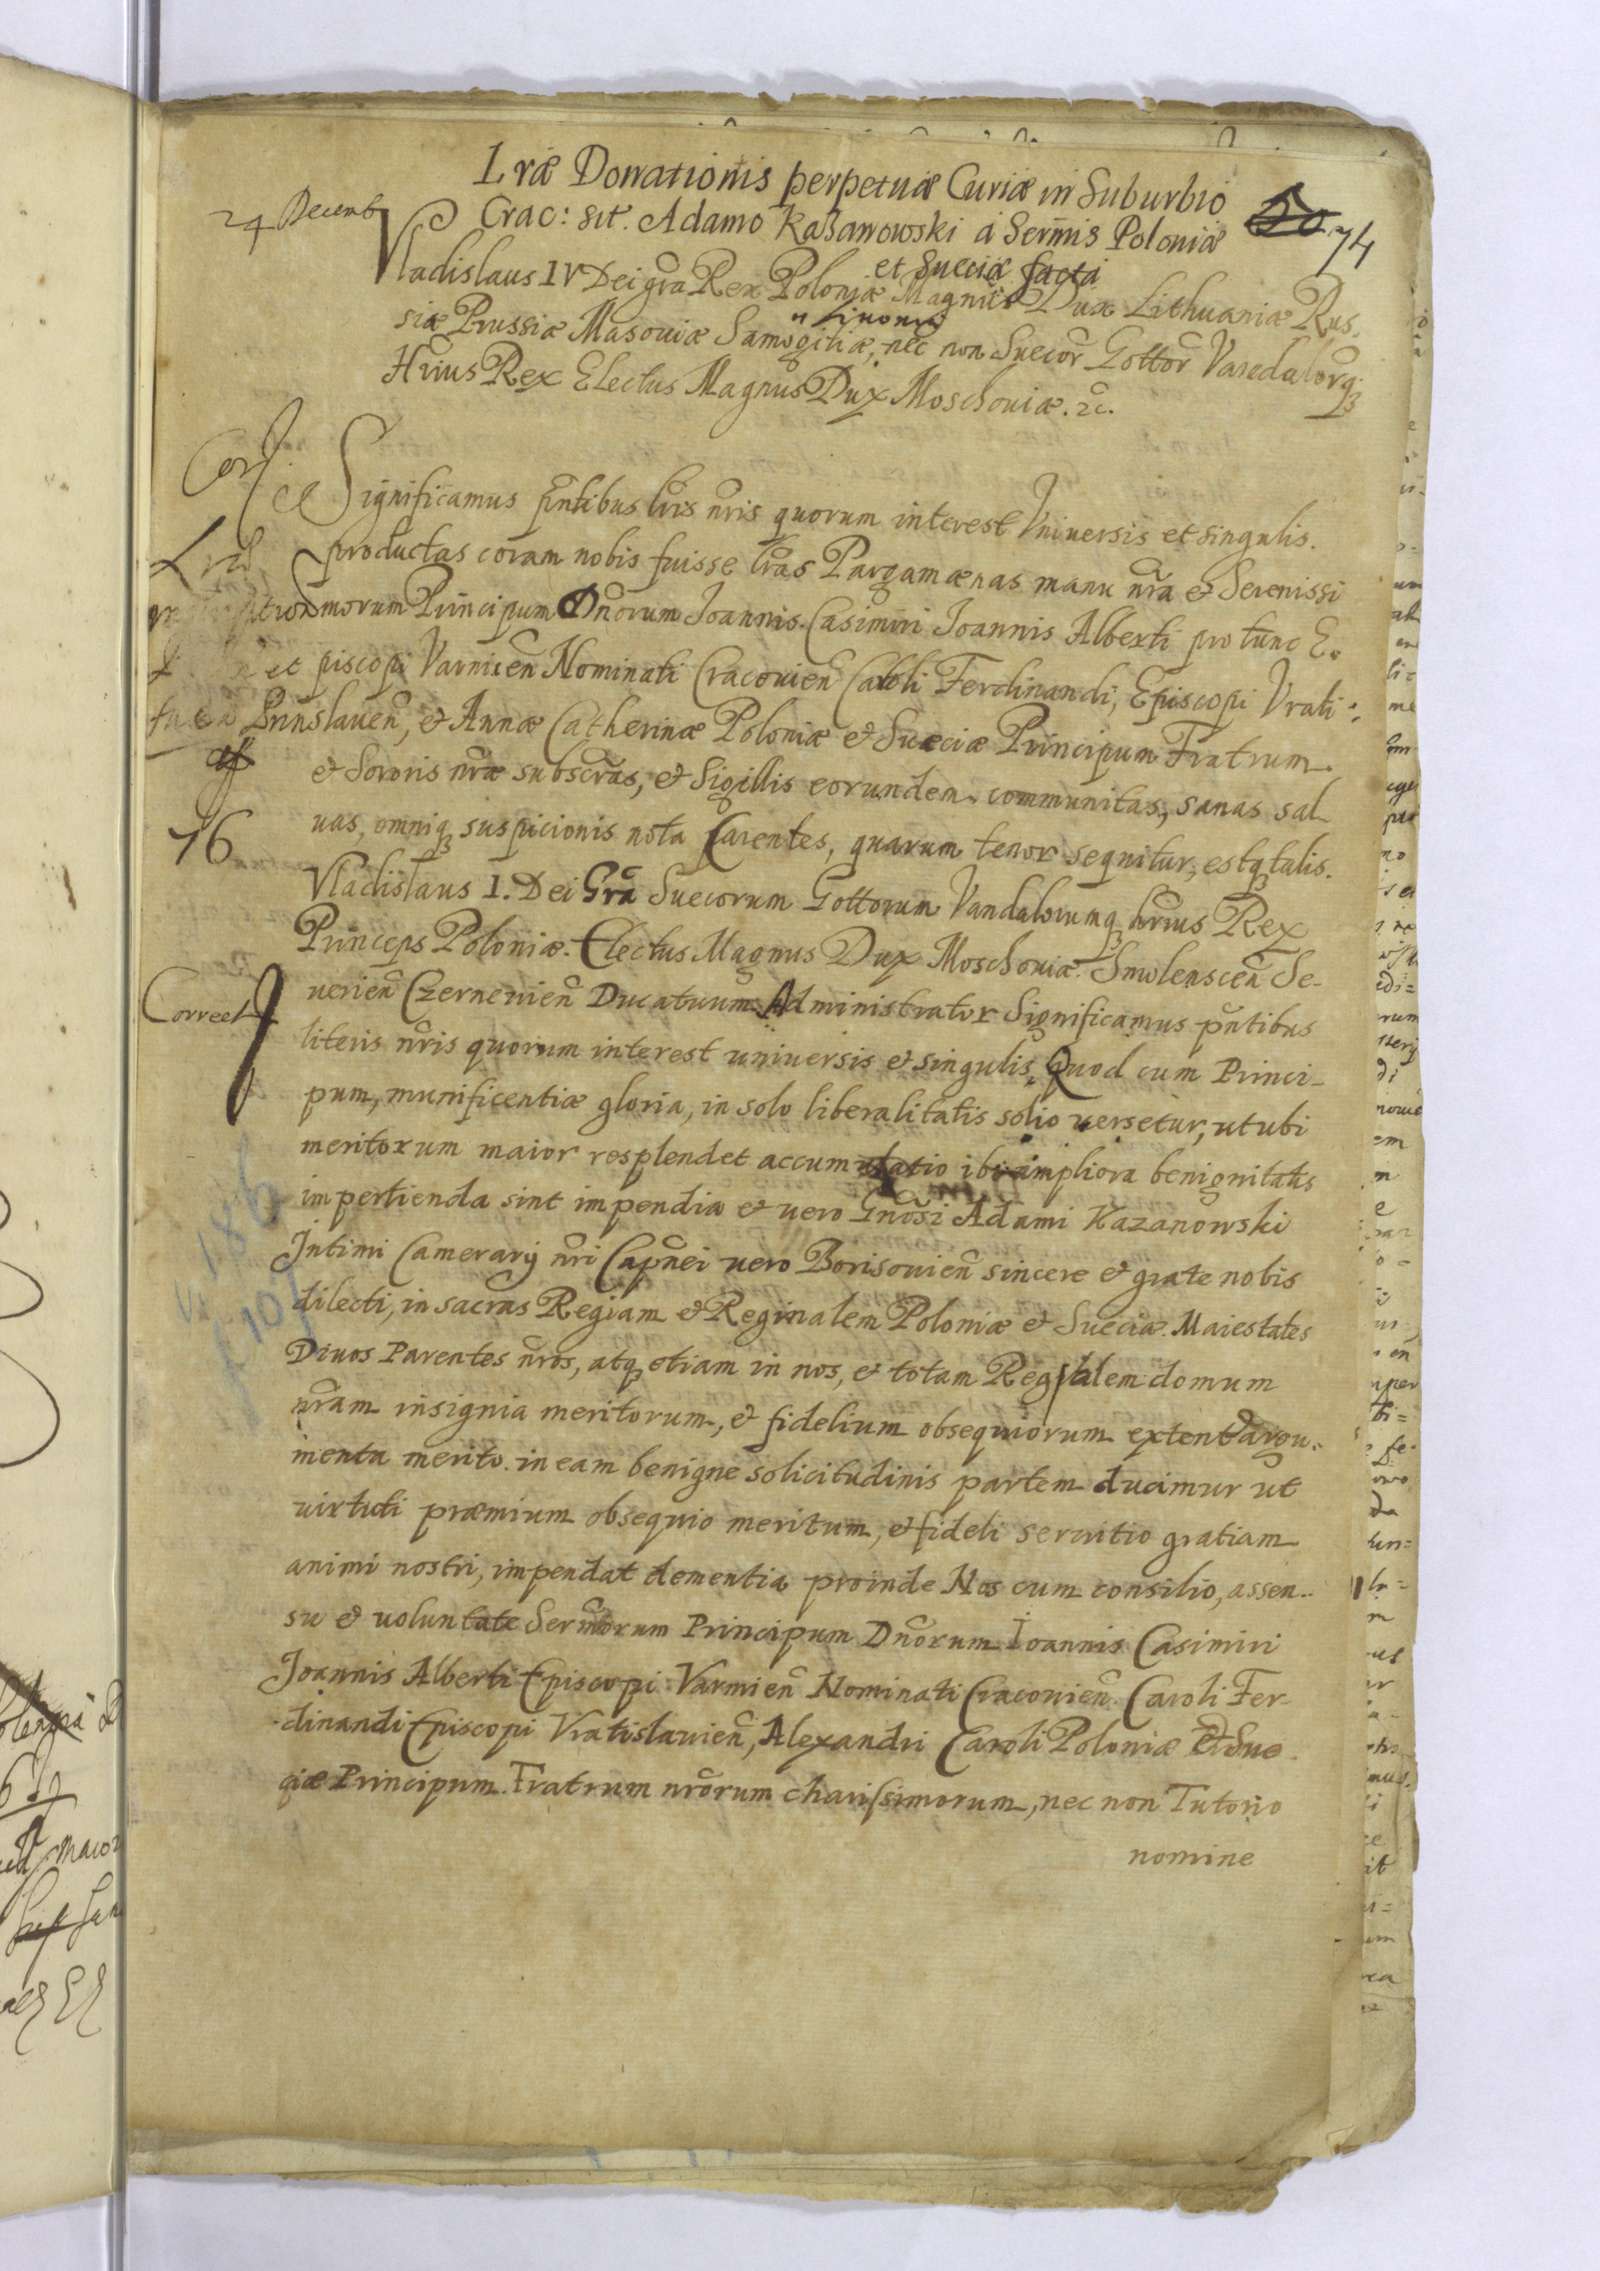 Lræ Donationis perpetuæ Curiæ in Suburbio
24 Decemb
Crac: sit. Adamo Kasanowski a Sermis Poloniæ
74
et Sueciæ facta
Vladislaus IV Dei gra Rex Poloniæ Magnus Dux Lithuaniæ Rus-
Livoniæ
siæ Prussiæ Masouiæ Samogitiæ, nec non Suecor Gottor Vandalorq3
Hrius Rex Electus Magnus Dux Moschouiæ. 2c.
Significamus pntibus lris nris quorum interest Vniuersis et singulis.
productas coram nobis fuisse lras Pargamænas manu nra et Serenissi
morum Principum Dnorum Joannis Casimiri Joannis Alberti pro tunc E-
piscopi Varmien Nominati Cracouien Caroli Ferdinandi, Episcopi Vrati-
slauen, et Annæ Catherinæ Poloniæ et Sueciæ Principum Fratrum
et Sororis nræ subscras, et Sigillis eorunden communitas, sanas sal
76
uas, omniq3 suspicionis nota Carentes, quarum tenor sequitur, estq3 talis.
Vladislaus I. Dei Gra Suecorum Gottorum Vandalorumq3 hrius Rex
Princeps Poloniæ. Electus Magnus Dux Moschouiæ. Smolenscen Se-
Correct
uerien Czernenien Ducatuum Administrator Significamus pntibus
literis nris quorum interest uniuersis et singulis, Quod cum Princi-
pum, munificentiæ gloria, in solo liberalitatis solio uersetur, ut ubi
meritorum maior resplendet accumulatio ibi ampliora benignitatis
impertienda sint impendia et uero Gnosi Adami Kazanowski
Intimi Camerarij nri Capnei uero Borisouien sincere et grate nobis
dilecti, in sacras Regiam et Reginalem Poloniæ et Sueciæ Maiestates
Diuos Parentes nros, atq3 etiam in nos, et totam Regalem domum
nram insignia meritorum, et fidelium obsequiorum extent argu-
menta merito in eam benigne solicitudinis partem ducimur ut
uirtuti præmium obsequio meritum, et fideli seruitio gratiam
animi nostri, impendat clementia proinde Nos cum consilio, assen-
su et uoluntate Sermorum Principum Dnorum Ioannis Casimiri
Joannis Alberti Episcopi Varmien Nominati Cracouien Caroli Fer
dinandi Episcopi Vratislauien, Alexandri Caroli Poloniæ et Sue
ciæ Principum Fratrum nrorum charissimorum, nec non Tutorio
nomine